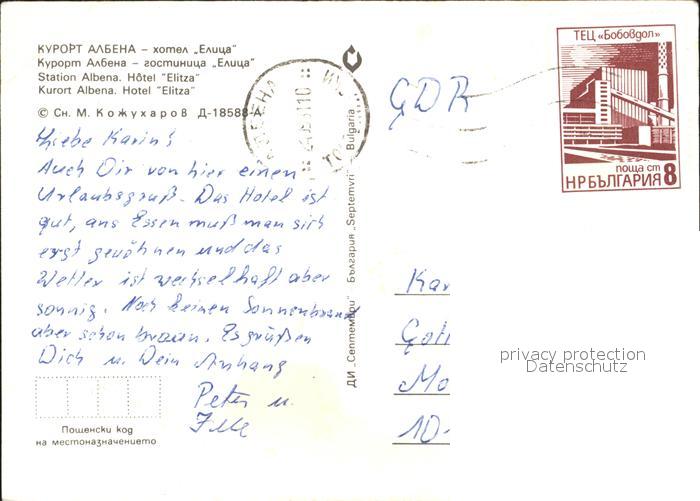 КУРОРТ АЛБЕНА – хотел „Елица“
Курорт Албена – гостиница „Елица“
Station Albena. Hôtel "Elitza"
Kurort Albena. Hotel "Elitza"
© Сн. М. Кожухаров Д-18588-А
Liebe Karin!
Auch Dir von hier einen
Urlaubsgruß. Das Hotel ist
gut, ans Essen muß man sich
erst gewöhnen und das
Wetter ist wechselhaft aber
sonnig. Noch keinen Sonnenbrand
aber schon braun. Es grüßen
Dich u. Dein Anhang
Peter u.
Пощенски код
на местоназначението
ДИ „Септември“ България „Septemvri“ Bulgaria
АЛБЕНА
GDR
ТЕЦ «Бобовдол»
поща ст
НР БЪЛГАРИЯ 8
Kar
Mo
10-
privacy protection
Datenschutz